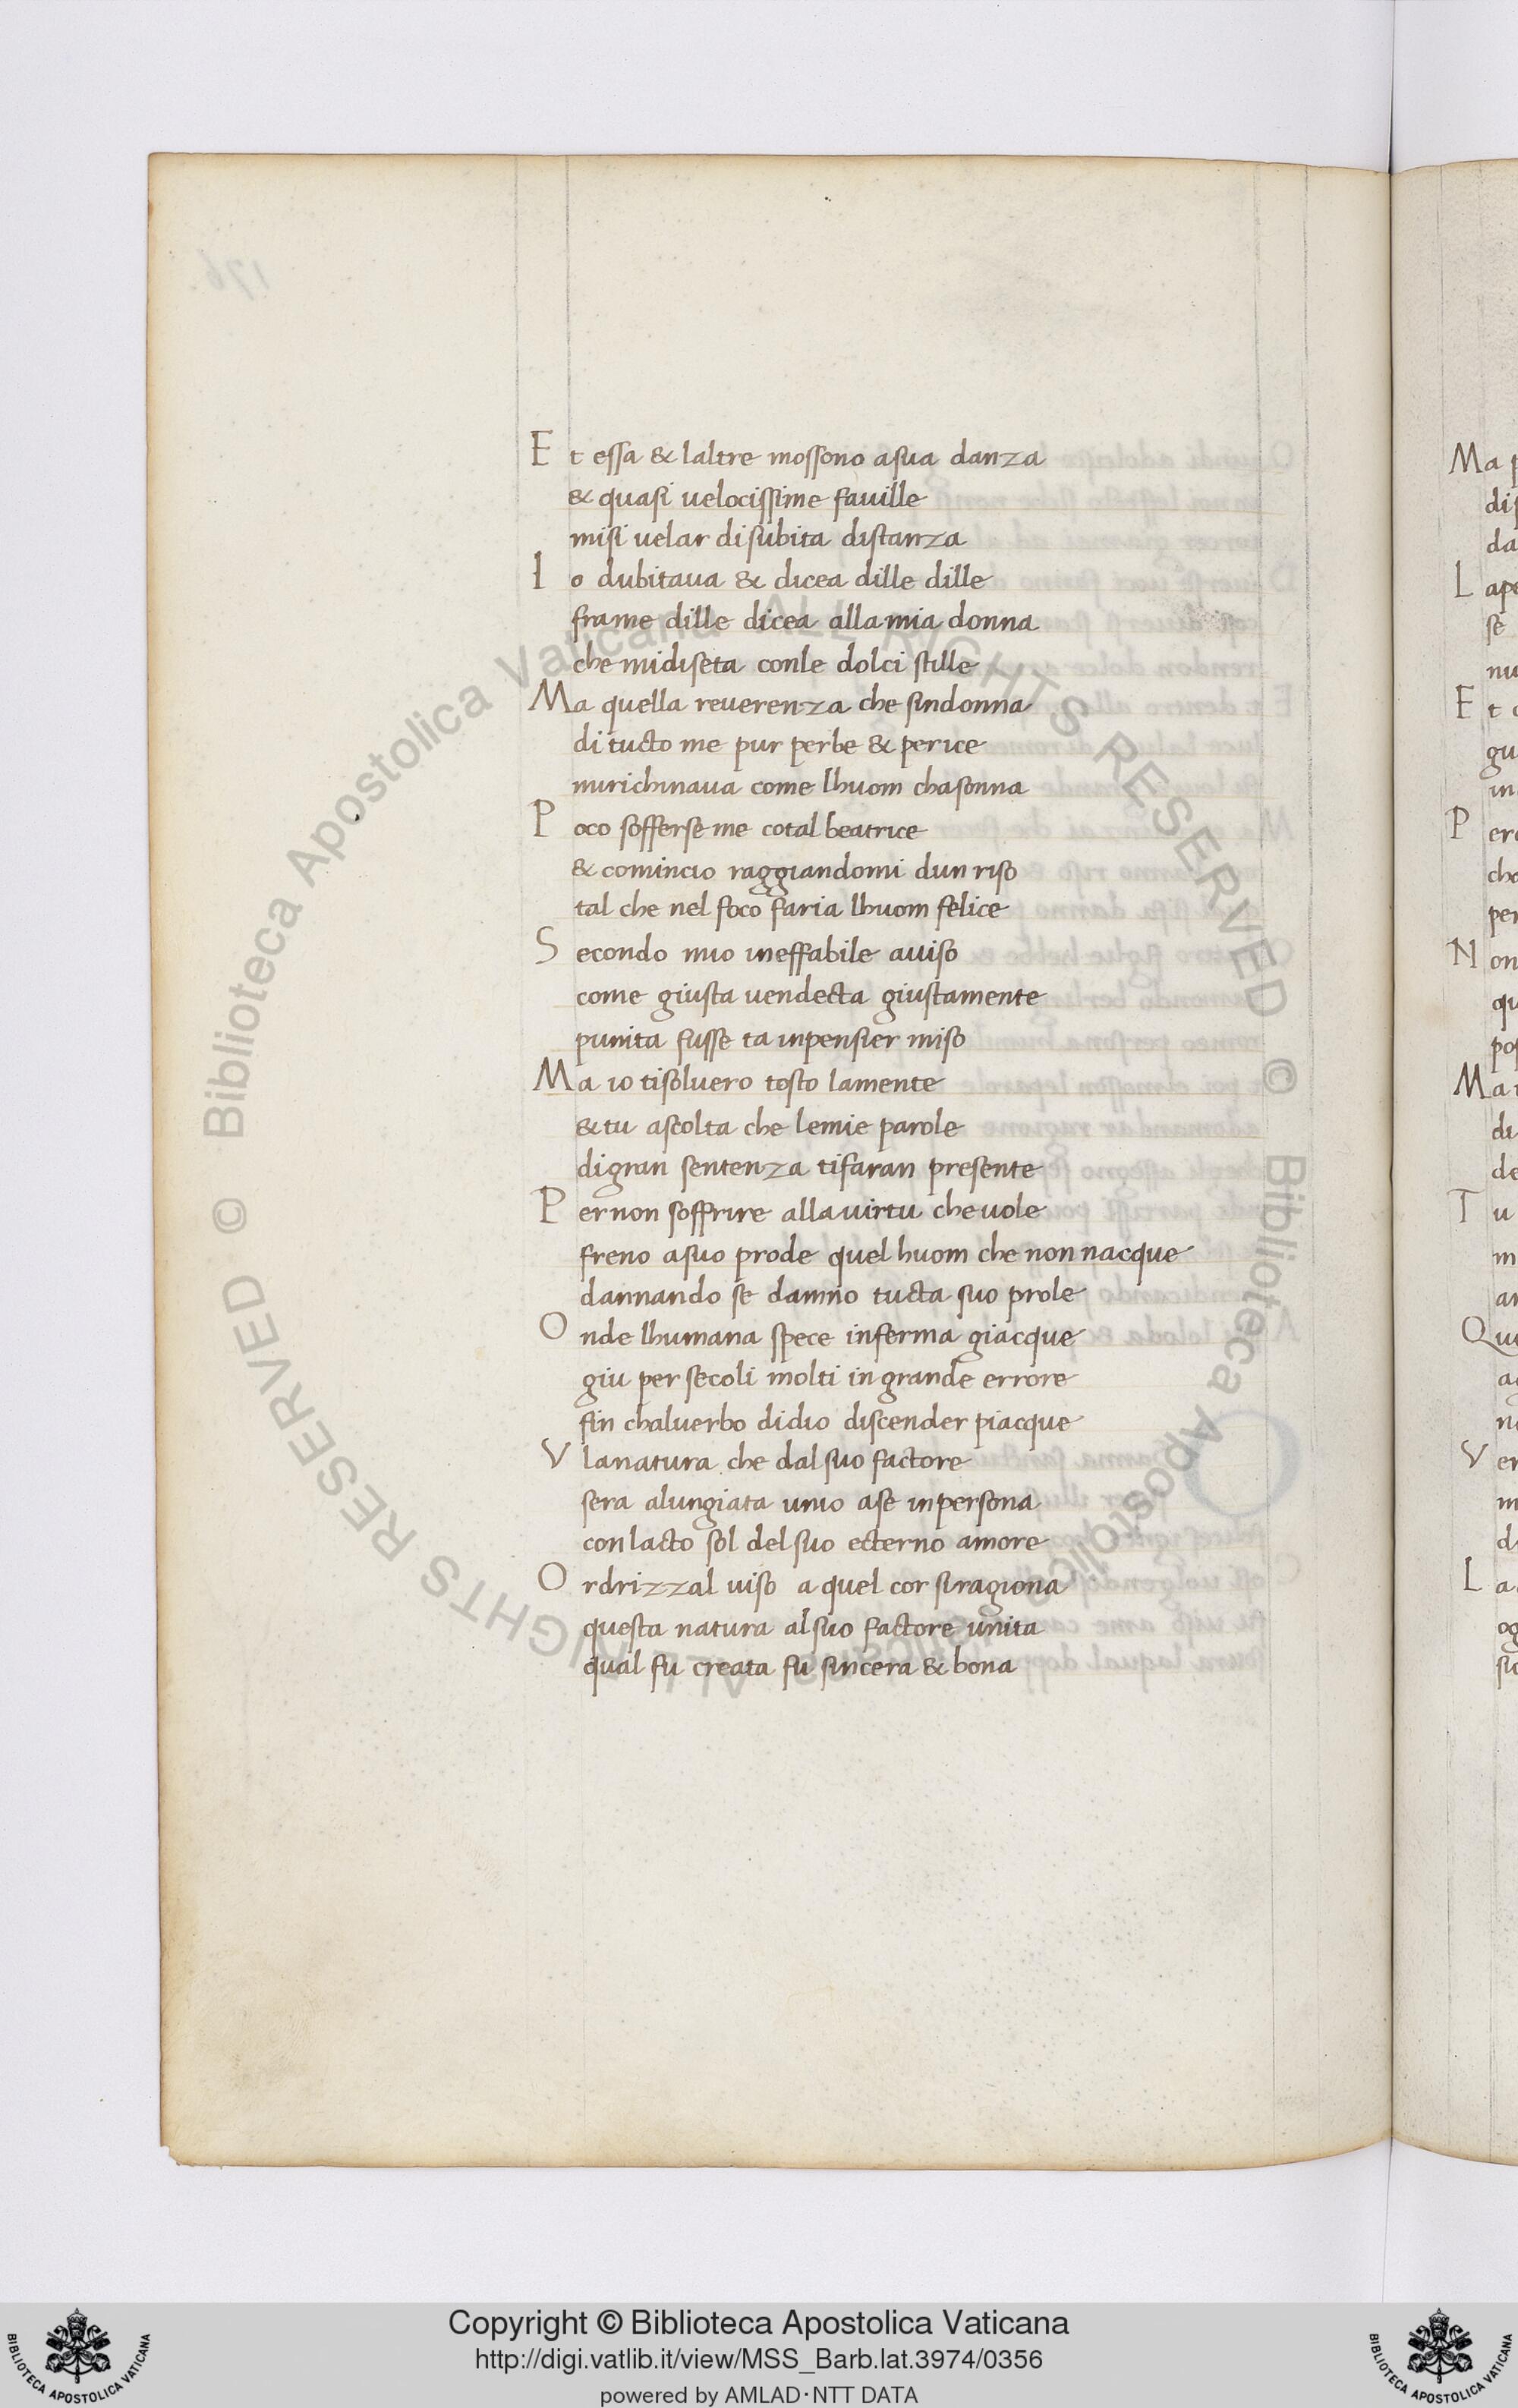 Et essa & laltre mossono asua danza
& quasi uelocissime fauille
misi uelar disubita distanza
Io dubitaua & dicea dille dille
frame dille dicea allamia donna
che midiseta conle dolci stille
Ma quella reuerenza che sindonna
di tucto me pur perbe & perice
mirichinaua come lhuom chasonna
Poco sofferse me cotal beatrice
& comincio raggiandomi dun riso
tal che nel foco faria lhuom felice
Secondo mio ineffabile auiso
come giusta uendecta giustamente
punita fusse ta inpensier miso
Ma io tisoluero tosto lamente
& tu ascolta che lemie parole
digran sentenza tifaran presente
Per non soffrire allauirtu cheuole
freno asuo prode quel huom che non nacque
dannando se danno tucta suo prole
Onde lhumana spece inferma giacque
giu per secoli molti in grande errore
fin chaluerbo didio discender piacque
V lanatura che dal suo factore
sera alungiata unio ase inpersona
con lacto sol del suo ecterno amore
Or drizzal uiso a quel cor siragiona
questa natura al suo factore unita
qual fu creata fu sincera & bona
Copyright © Biblioteca Apostolica Vaticana
http://digi.vatlib.it/view/MSS_Barb.lat.3974/0356
powered by AMLAD·NTT DATA